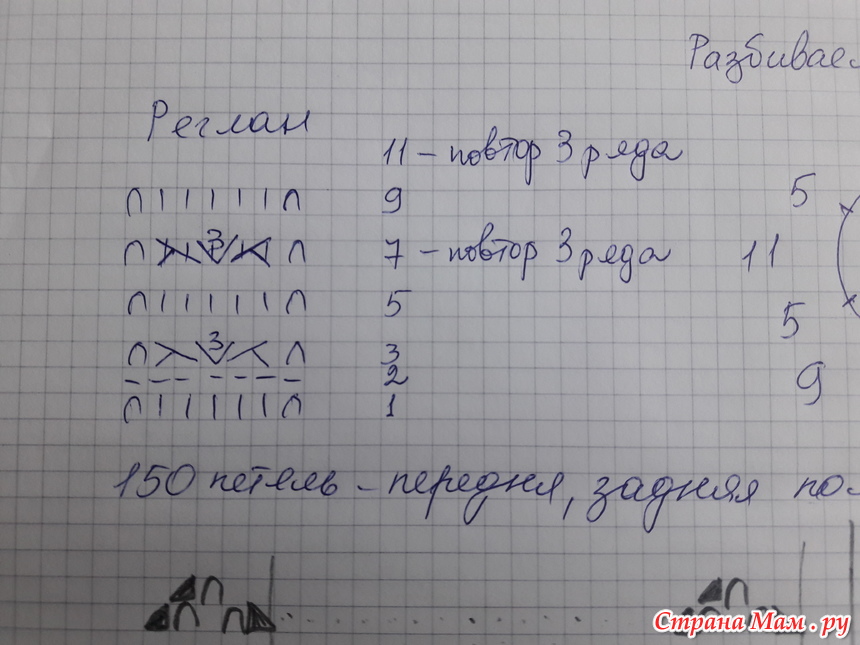 Разбивае
Реглан
11 – повтор 3 ряда
9
5
3
7 – повтор 3 ряда
11
5
5
3
3
2
9
1
150 петель – передня, задняя по-
Страна Мам.ру